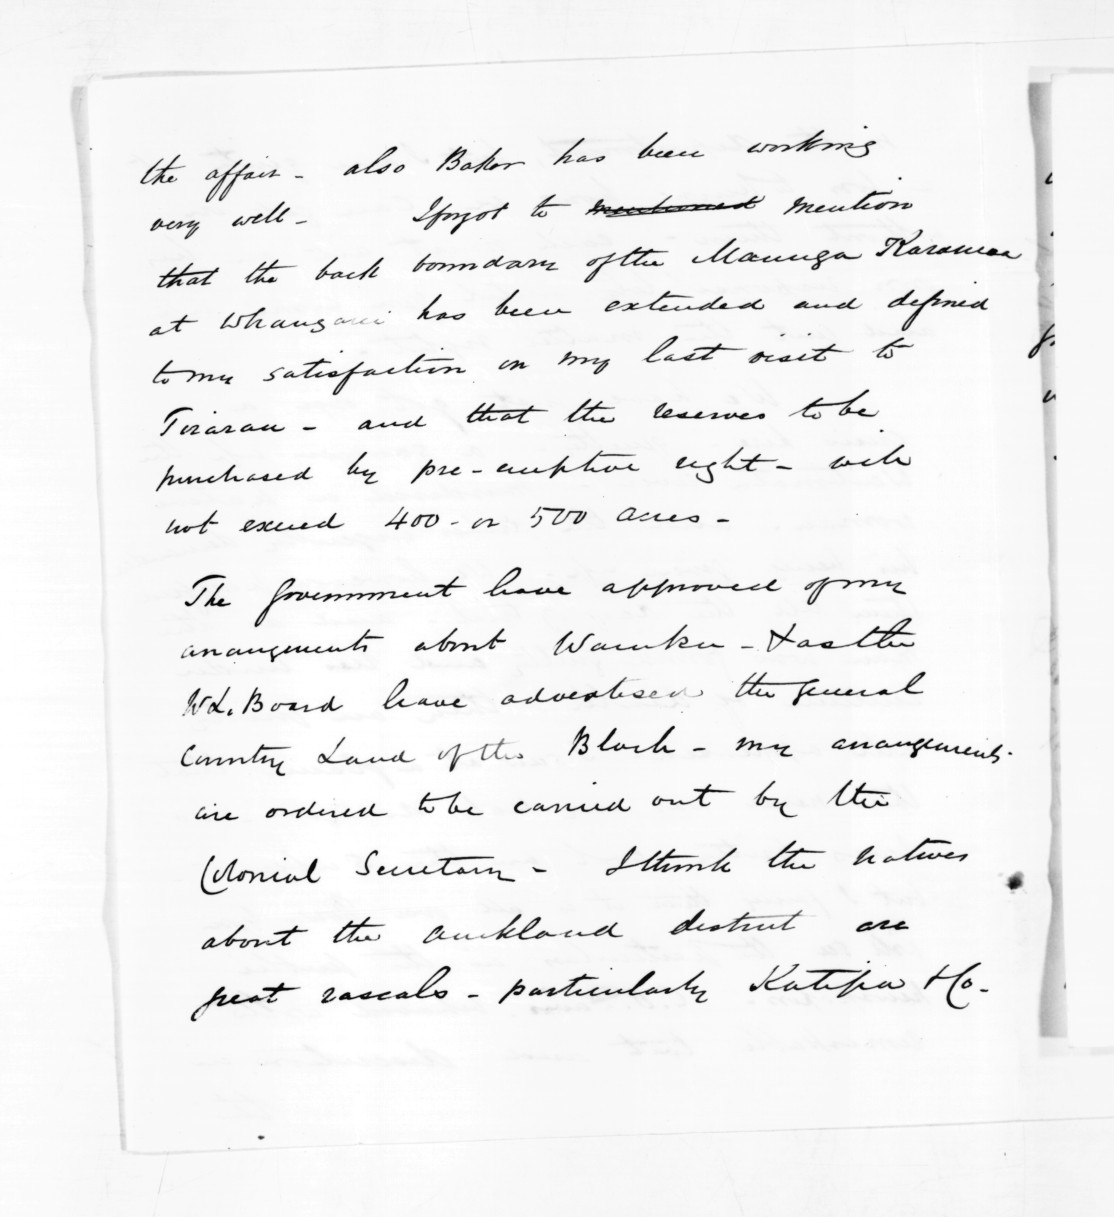 the affair - also Baker has been working
very well - I forgot to mentioned mention
that the back boundary of the Maunga Karamea
at Whangarei has been extended and defined
to my satisfaction on my last visit to
Tirarau - and that the reserves to be
purchased by pre-emptive right - will
not exceed 400 - or 500 acres -
The Government have approved of my
arrangements about Waiuku - & as the
W L. Board have advertised the general
Country Land of the Block - my arrangements
are ordered to be carried out by the
Colonial Secretary - I think the natives
about the Auckland district are
great rascals - particularly Katipa & Co -